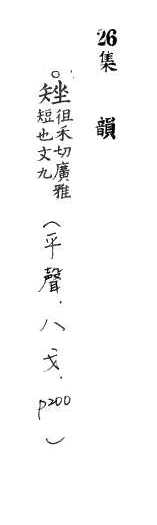 26集 韻
○矬徂禾切廣雅
短也文九
(平聲.八戈.p200)